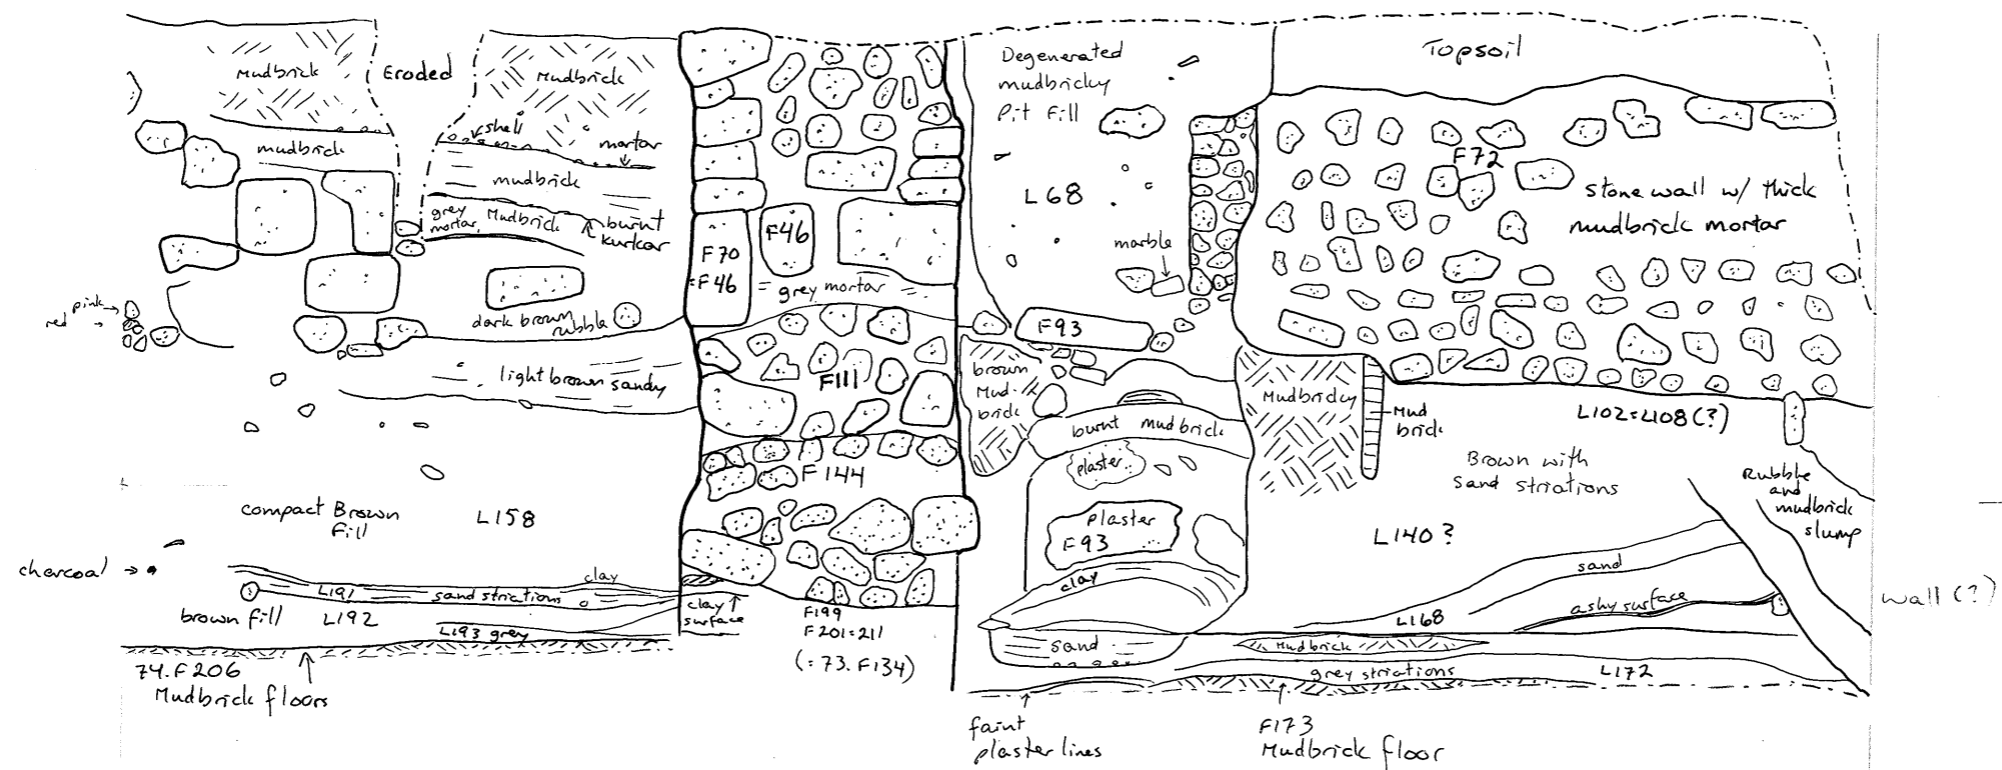 Mudbrick
Eroded
Mudbrick
shell
mortar
mudbrick
mudbrick
grey
mortar
Mudbrick
burnt
kurkar
pink
red
dark brown
rubble
light brown sandy
compact Brown
Fill
L158
charcoal
clay
L191
sand striations
brown fill
L192
L193 grey
74.F206
Mudbrick floors
F70
=F46
F46
= grey mortar
F111
F144
clay
surface
F199
F201=211
(=73.F134)
Degenerated
mudbricky
Pit Fill
L68
marble
F93
brown
Mud-
brick
burnt mudbrick
plaster
plaster
F93
clay
sand
faint
plaster lines
Topsoil
F72
stone wall w/ thick
mudbrick mortar
Mudbricky
Mud
brick
L102=L108(?)
Brown with
Sand striations
Rubble
and
mudbrick
slump
L140?
sand
ashy surface
wall (?)
L168
Mudbrick
grey striations
L172
F173
Mudbrick floor